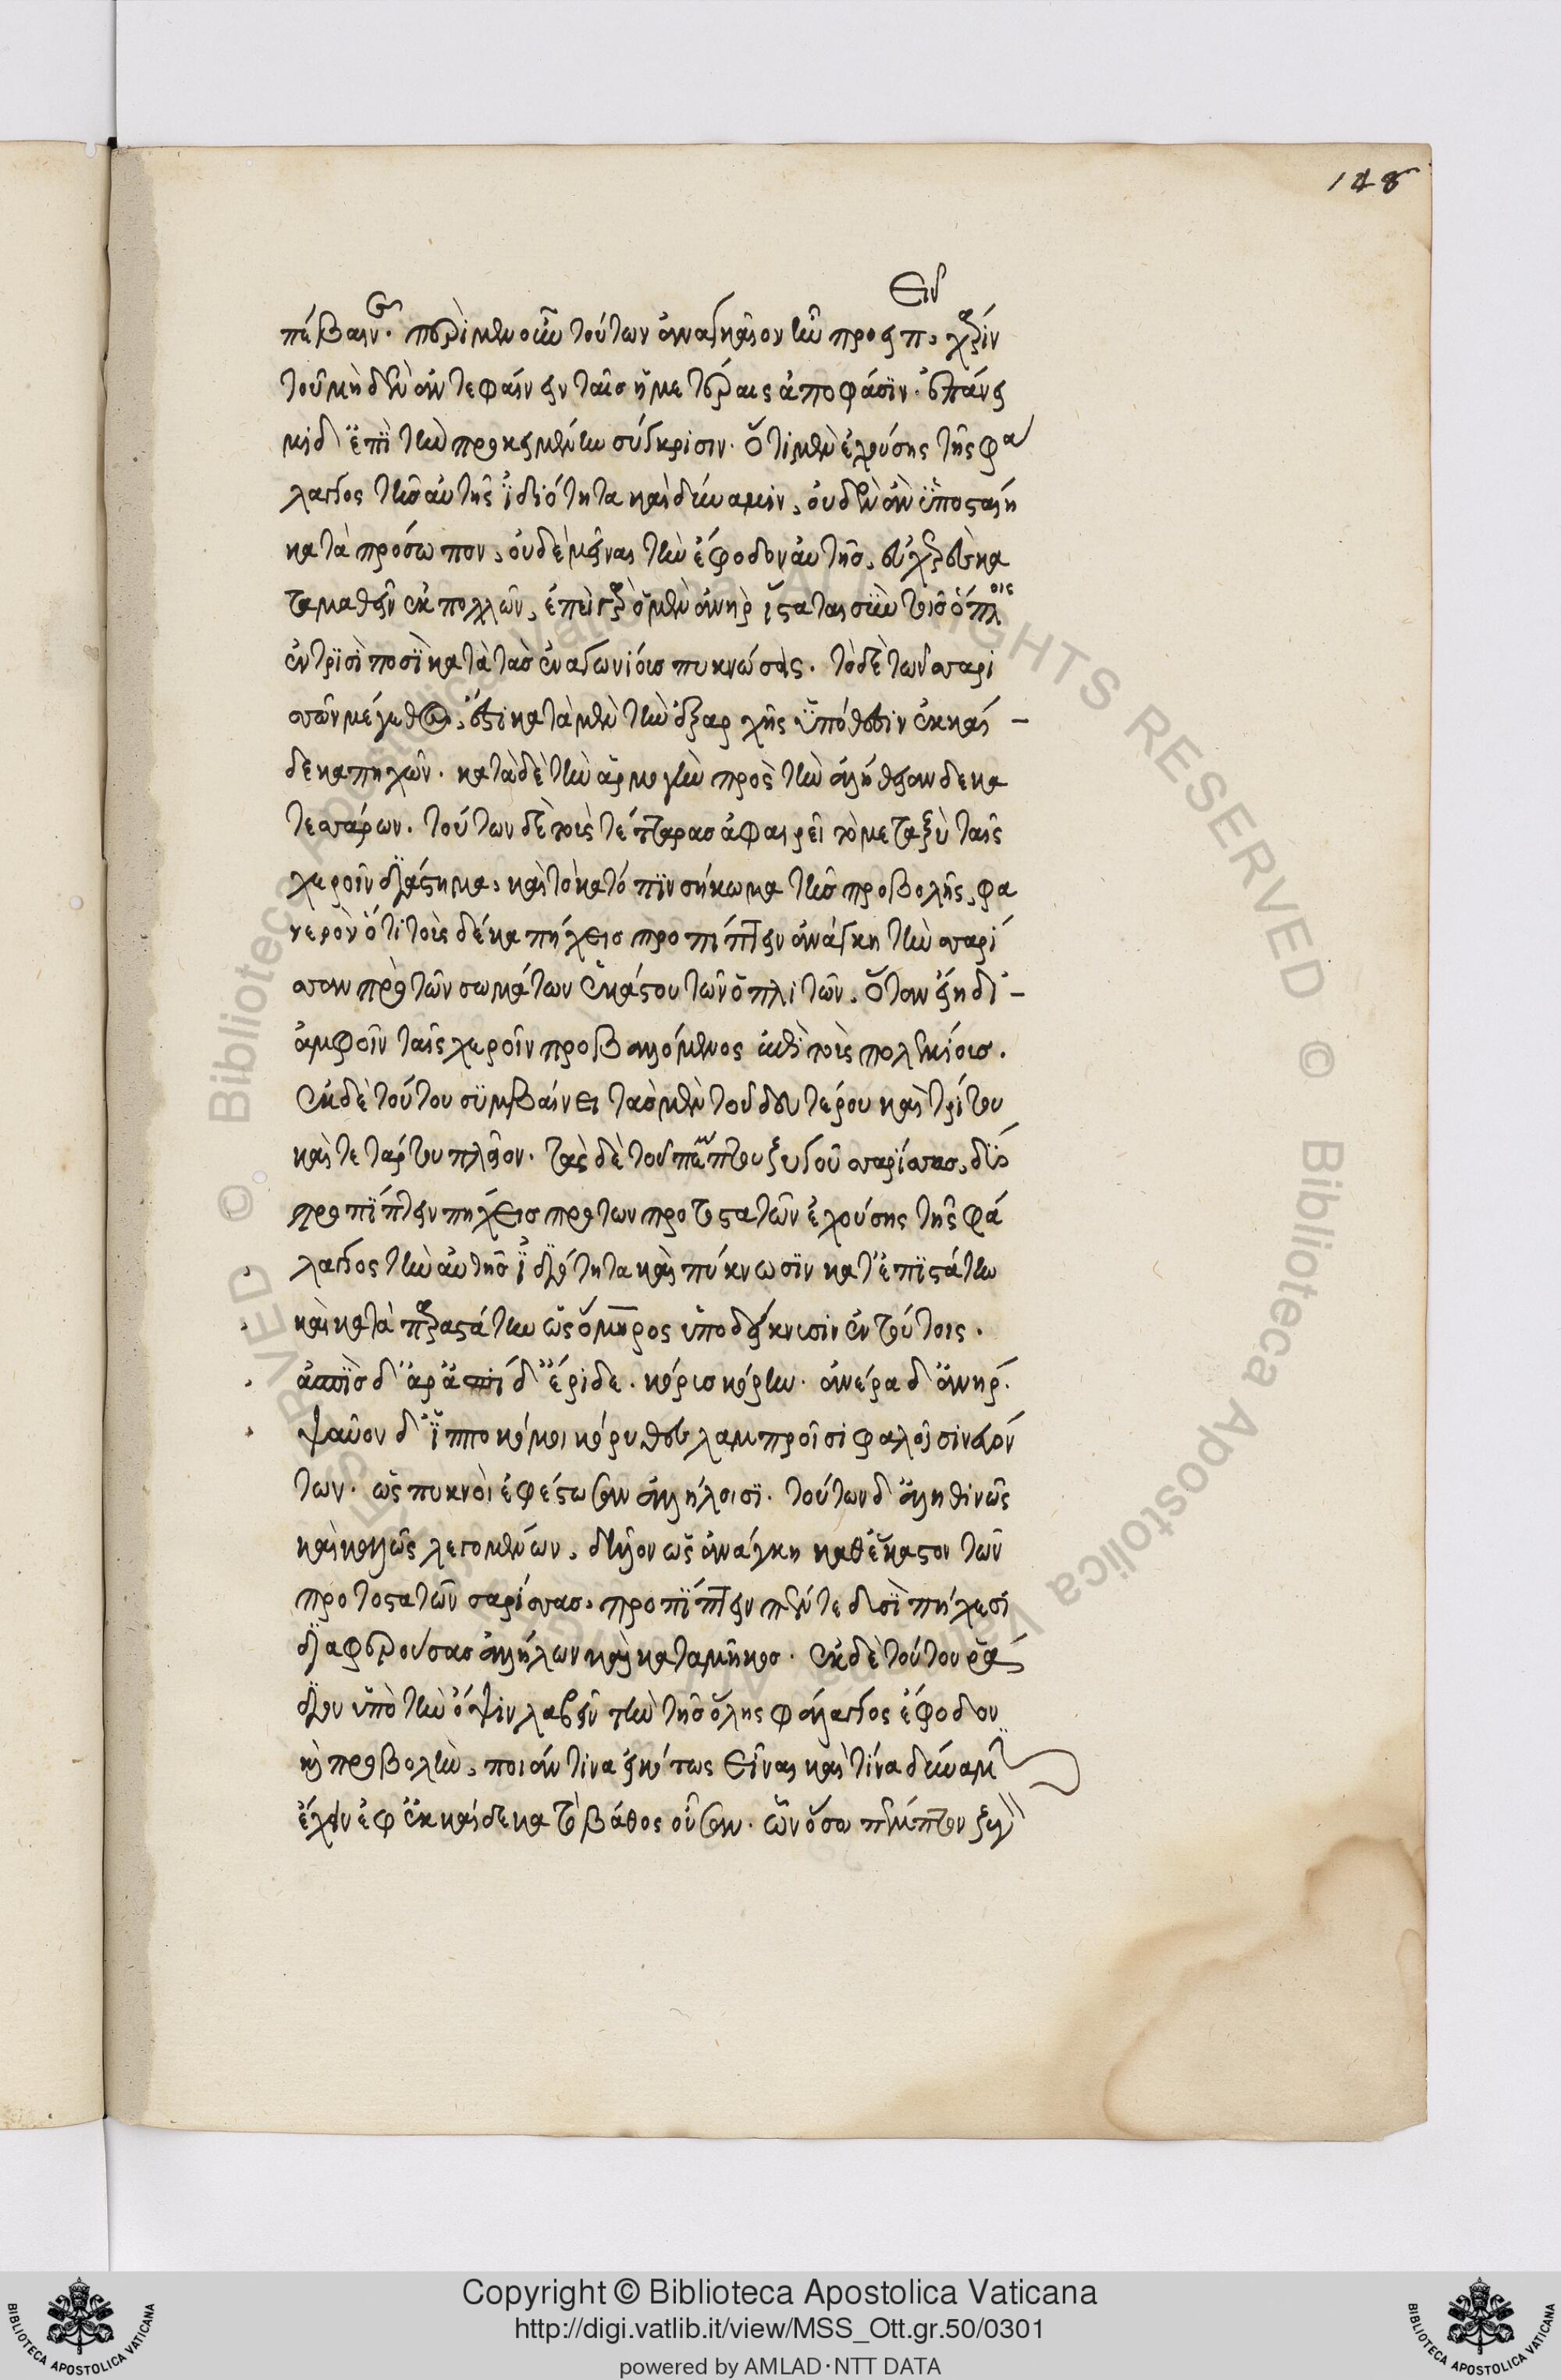 148
πέβαιν. περὶ μὲν οὖν τούτων ἀναγκαῖον ἦν προσειπεῖν χάριν
τοῦ μηδὲν ἀντεφαίνειν ταῖς ἡμετέραις ἀποφάσιν. ἐπάνει
μι δ' ἐπὶ τὴν προκειμένην σύγκρισιν. ὅτι μὲν ἐχούσης τῆς φα
λαγγος τὴν αὑτῆς ἰδιότητα καὶ δύναμιν, οὐδὲν ἂν ὑποσταίη
κατὰ πρόσωπον, οὐδὲ μεῖναι τὴν ἔφοδον αὐτῆς, εὐχερὲς κα
ταμαθεῖν ἐκ πολλῶν, ἐπεὶ γὰρ ὁ μὲν ἀνὴρ ἵσταται σὺν τοῖς ὅπλοις
ἐν τρισὶ ποσὶ κατὰ τὰς ἐναγωνίοις πυκνώσεις. τὸ δὲ τῶν σαρι
σσῶν μέγεθος, ἐστὶ κατὰ μὲν τὴν ἐξαρχῆς ὑπόθεσιν ἑκκαί-
δεκα πηχῶν. κατὰ δὲ τὴν ἁρμογὴν πρὸς τὴν ἀλήθειαν δεκα
τεσσάρων. τούτων δὲ τοὺς τέτταρας ἀφαιρεῖ τὸ μεταξὺ ταῖς
χεροῖν διάστημα, καὶ τὸ κατόπιν σήκωμα τῆς προβολῆς, φα
νερὸν ὅτι τοὺς δέκα πήχεις προπίπτειν ἀνάγκη τὴν σαρί
σσαν πρὸ τῶν σωμάτων ἑκάστου τῶν ὁπλιτῶν. ὅταν ἴη δι'-
ἀμφοῖν ταῖς χεροῖν προβαλόμενος ἐπὶ τοὺς πολεμίοις.
ἐκ δὲ τούτου συμβαίνει τὰς μὲν τοῦ δευτέρου καὶ τρίτου
καὶ τετάρτου πλεῖον. τὰς δὲ τοῦ πέμπτου ζυγοῦ σαρίσσας, δύο
προπίπτειν πήχεις πρὸ τῶν προτοστατῶν ἐχούσης τῆς φά
λαγγος τὴν αὑτῆς ἰδιότητα καὶ πύκνωσιν κατ' ἐπιστάτην
καὶ κατὰ παραστάτην ὡς ὅμηρος ὑποδείκνυσιν ἐν τούτοις.
ἀσπὶς δ' ἄρ' ἀσπίδ' ἔρειδε. κόρυς κόρυν. ἀνέρα δ' ἀνήρ.
ψαῦον δ' ἱπποκόμοι κόρυθες λαμπροῖσι φαλοῖσι νευόν
των. ὡς πυκνοὶ ἐφέστασαν ἀλλήλοισι. τούτων δ' ἀληθινῶς
καὶ καλῶς λεγομένων, δῆλον ὡς ἀνάγκη καθ' ἕκαστον τῶν
προτοστατῶν σαρίσσας, προπίπτειν πέντε δυσὶ πήχεσι
διαφερούσας ἀλλήλων καὶ κατα μῆκος. ἐκ δὲ τούτου ῥᾴ
διον ὑπὸ τὴν ὄψιν λαβεῖν τὴν τῆς ὅλης φάλαγγος ἔφοδον
καὶ προβολὴν, ποιάν τινα εἰκότως εἶναι καὶ τίνα δύναμιν
ἔχειν ἐφ' ἑκκαίδεκα τὸ βάθος οὖσαν. ὧν ὅσοι πέμπτον ζυγ